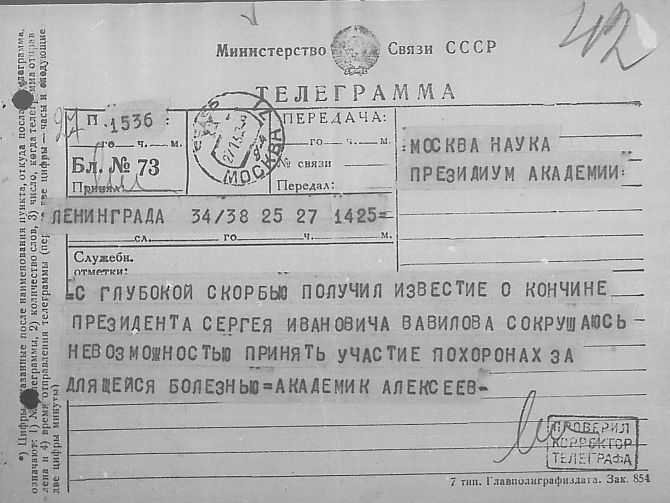 42
Министерство Связи СССР
ТЕЛЕГРАММА
П. 1536
го ч. м.
Бл. № 73
Принял:
МОСКВА
ПЕРЕДАЧА:
го ч. м.
№ связи
Передал:
МОСКВА НАУКА
ПРЕЗИДИУМ АКАДЕМИИ
ЛЕНИНГРАДА 34/38 25 27 1425=
сл. го ч. м.
Служебн.
отметки:
=С ГЛУБОКОЙ СКОРБЬЮ ПОЛУЧИЛ ИЗВЕСТИЕ О КОНЧИНЕ
ПРЕЗИДЕНТА СЕРГЕЯ ИВАНОВИЧА ВАВИЛОВА СОКРУШАЮСЬ
НЕВОЗМОЖНОСТЬЮ ПРИНЯТЬ УЧАСТИЕ ПОХОРОНАХ ЗА
ДЛЯЩЕЙСЯ БОЛЕЗНЬЮ=АКАДЕМИК АЛЕКСЕЕВ-
ПРОВЕРИЛ
КОРРЕКТОР
ТЕЛЕГРАФА
7 тип. Главполиграфиздата. Зак. 854
*) Цифры, указанные после наименования пункта, откуда послана телеграмма,
означают: 1) № телеграммы, 2) количество слов, 3) число, когда телеграмма отправ
лена и 4) время отправления телеграммы (первые две цифры — часы и следующие
две цифры минуты)